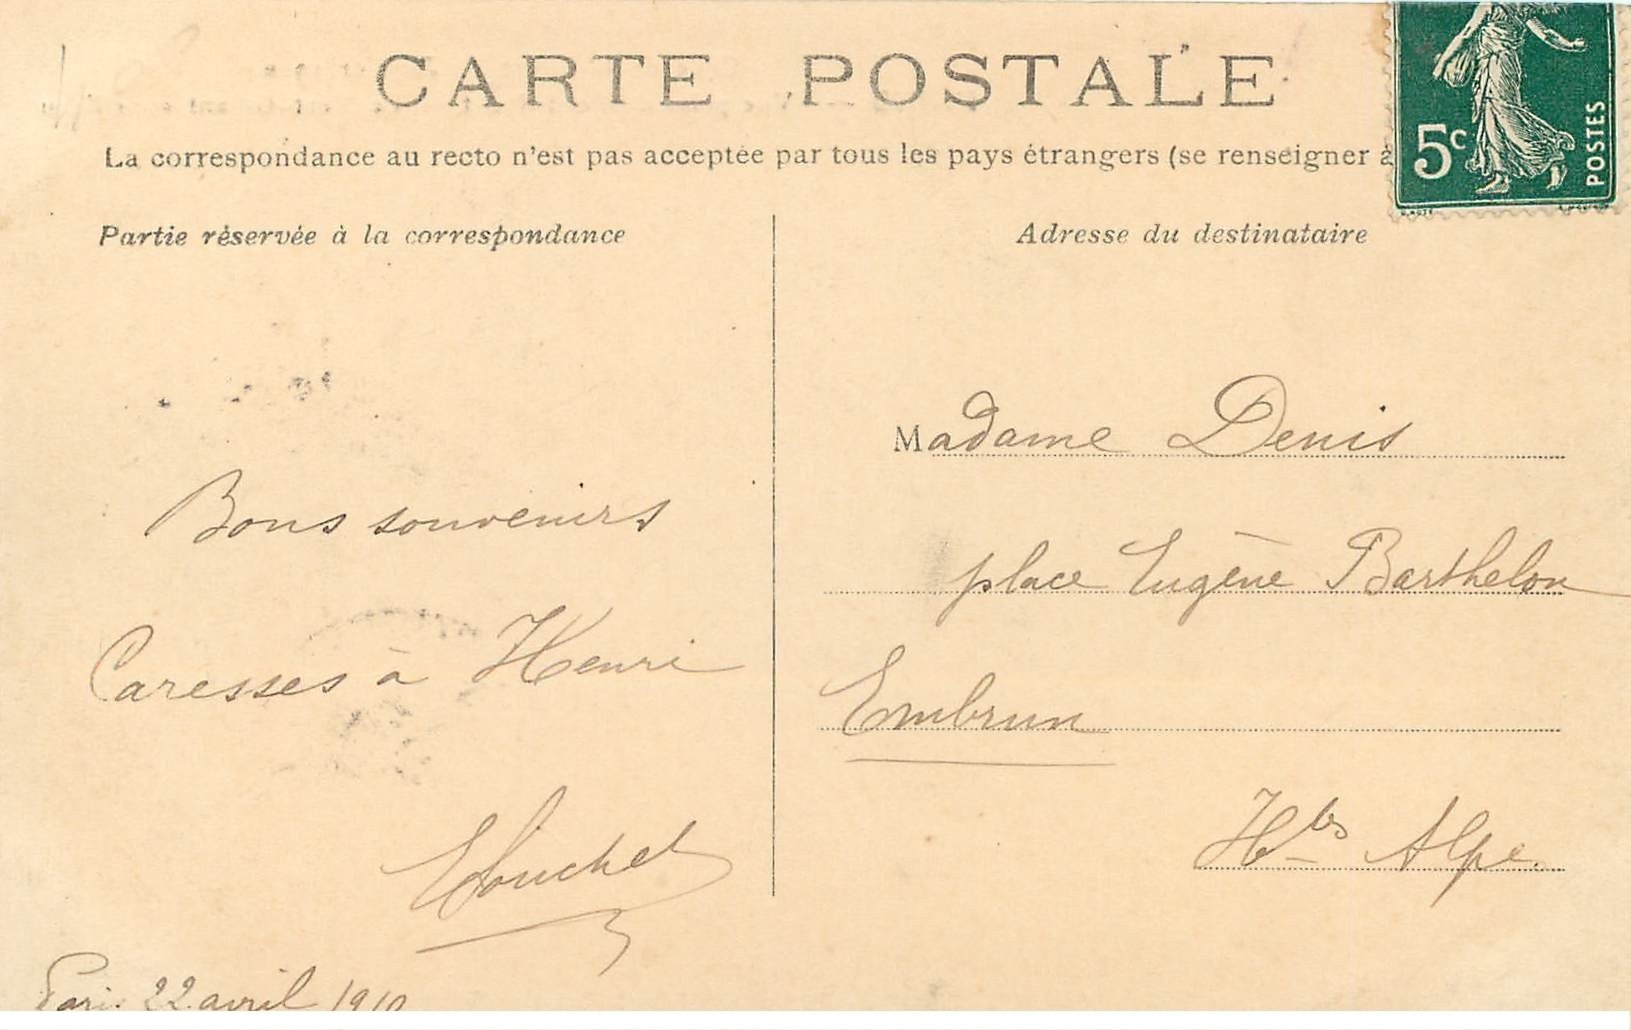 CARTE POSTALE
La correspondance au recto n'est pas acceptée par tous les pays étrangers (se renseigner à
5c
POSTES
Partie réservée à la correspondance
Bons souvenirs
Caresses à Henri
Paris 22 avril 1910
Adresse du destinataire
Madame Denis
place Eugène Barthelon
Embrun
Htes Alpe.